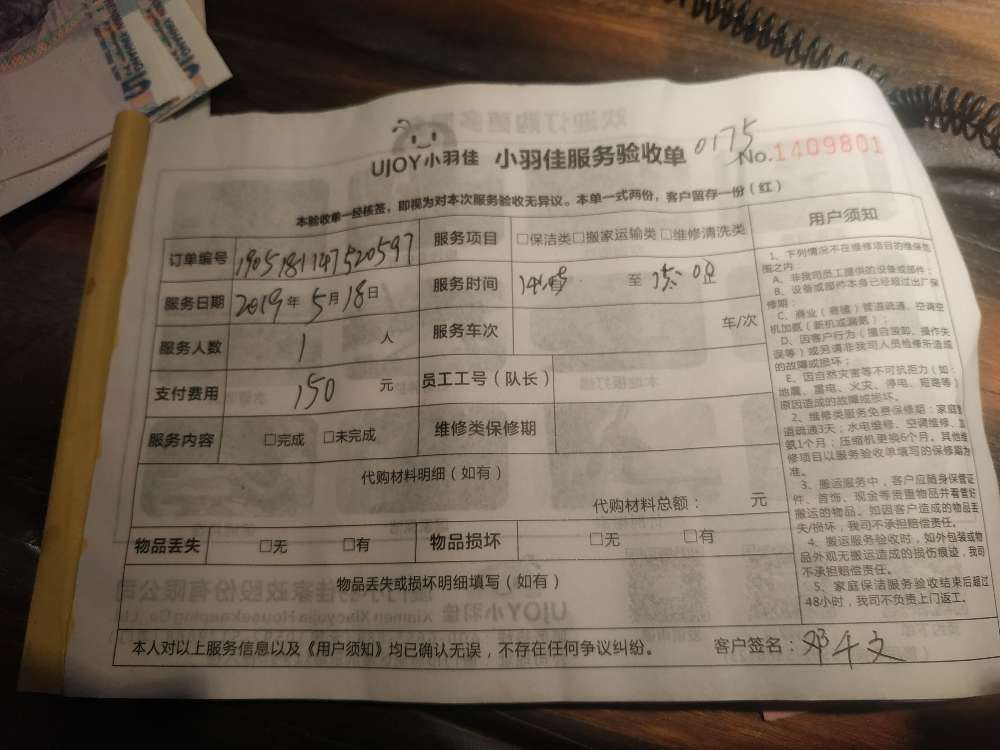 UJOY小羽佳 小羽佳服务验收单 0175 No.1409801
本验收单一经核签，即视为对本次服务验收无异议。本单一式两份，客户留存一份（红）
订单编号 190518114752059
服务项目 □保洁类□搬家运输类□维修清洗类
服务日期 2019年5月18日
服务时间 至
服务人数 1 人
服务车次 车/次
支付费用 150 元
员工工号（队长）
服务内容 □完成 □未完成
维修类保修期
代购材料明细（如有）
代购材料总额： 元
物品丢失 □无 □有
物品损坏 □无 □有
物品丢失或损坏明细填写（如有）
本人对以上服务信息以及《用户须知》均已确认无误，不存在任何争议纠纷。
客户签名：邓千文
用户须知
1、下列情况不在维修项目的维保范
围之内：
A、非我司员工提供的设备或部件；
B、设备或部件本身已经超过出厂保
修期；
C、商业（商铺）管道疏通、空调空
机加氨（新机或漏氨）；
D、因客户行为（擅自拆卸、操作失
误等）或另请非我司人员检修所造成
的故障或损坏；
E、因自然灾害等不可抗拒力（如：
地震、雷电、火灾、停电、短路等）
原因造成的故障或损坏。
2、维修类服务免费保修期：家庭管
道疏通3天；水电维修、空调维修、加
氨1个月；压缩机更换6个月。其他维
修项目以服务验收单填写的保修期为
准。
3、搬运服务中，客户应随身保管证
件、首饰、现金等贵重物品并看管好
搬运的物品。如因客户造成的物品丢
失/损坏，我司不承担赔偿责任。
4、搬运服务验收时，如外包装或物
品外观无搬运造成的损伤痕迹，我司
不承担赔偿责任。
5、家庭保洁服务验收结束后超过
48小时，我司不负责上门返工。